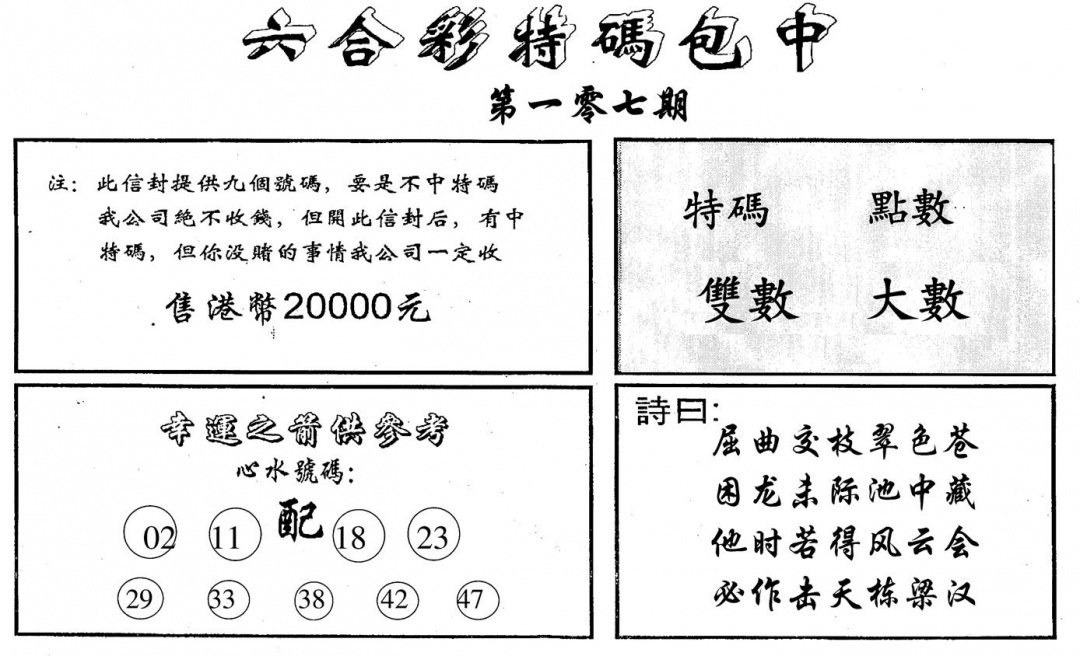 六合彩特碼包中
第一零七期
注：此信封提供九個號碼，要是不中特碼
我公司絶不收錢，但開此信封后，有中
特碼，但你没賭的事情我公司一定收
售港幣20000元
特碼 點數
雙數 大數
幸運之箭供參考
心水號碼：
配
02 11 18 23
29 33 38 42 47
詩曰：
屈曲交枝翠色苍
困龙未际池中藏
他时若得风云会
必作击天栋梁汉